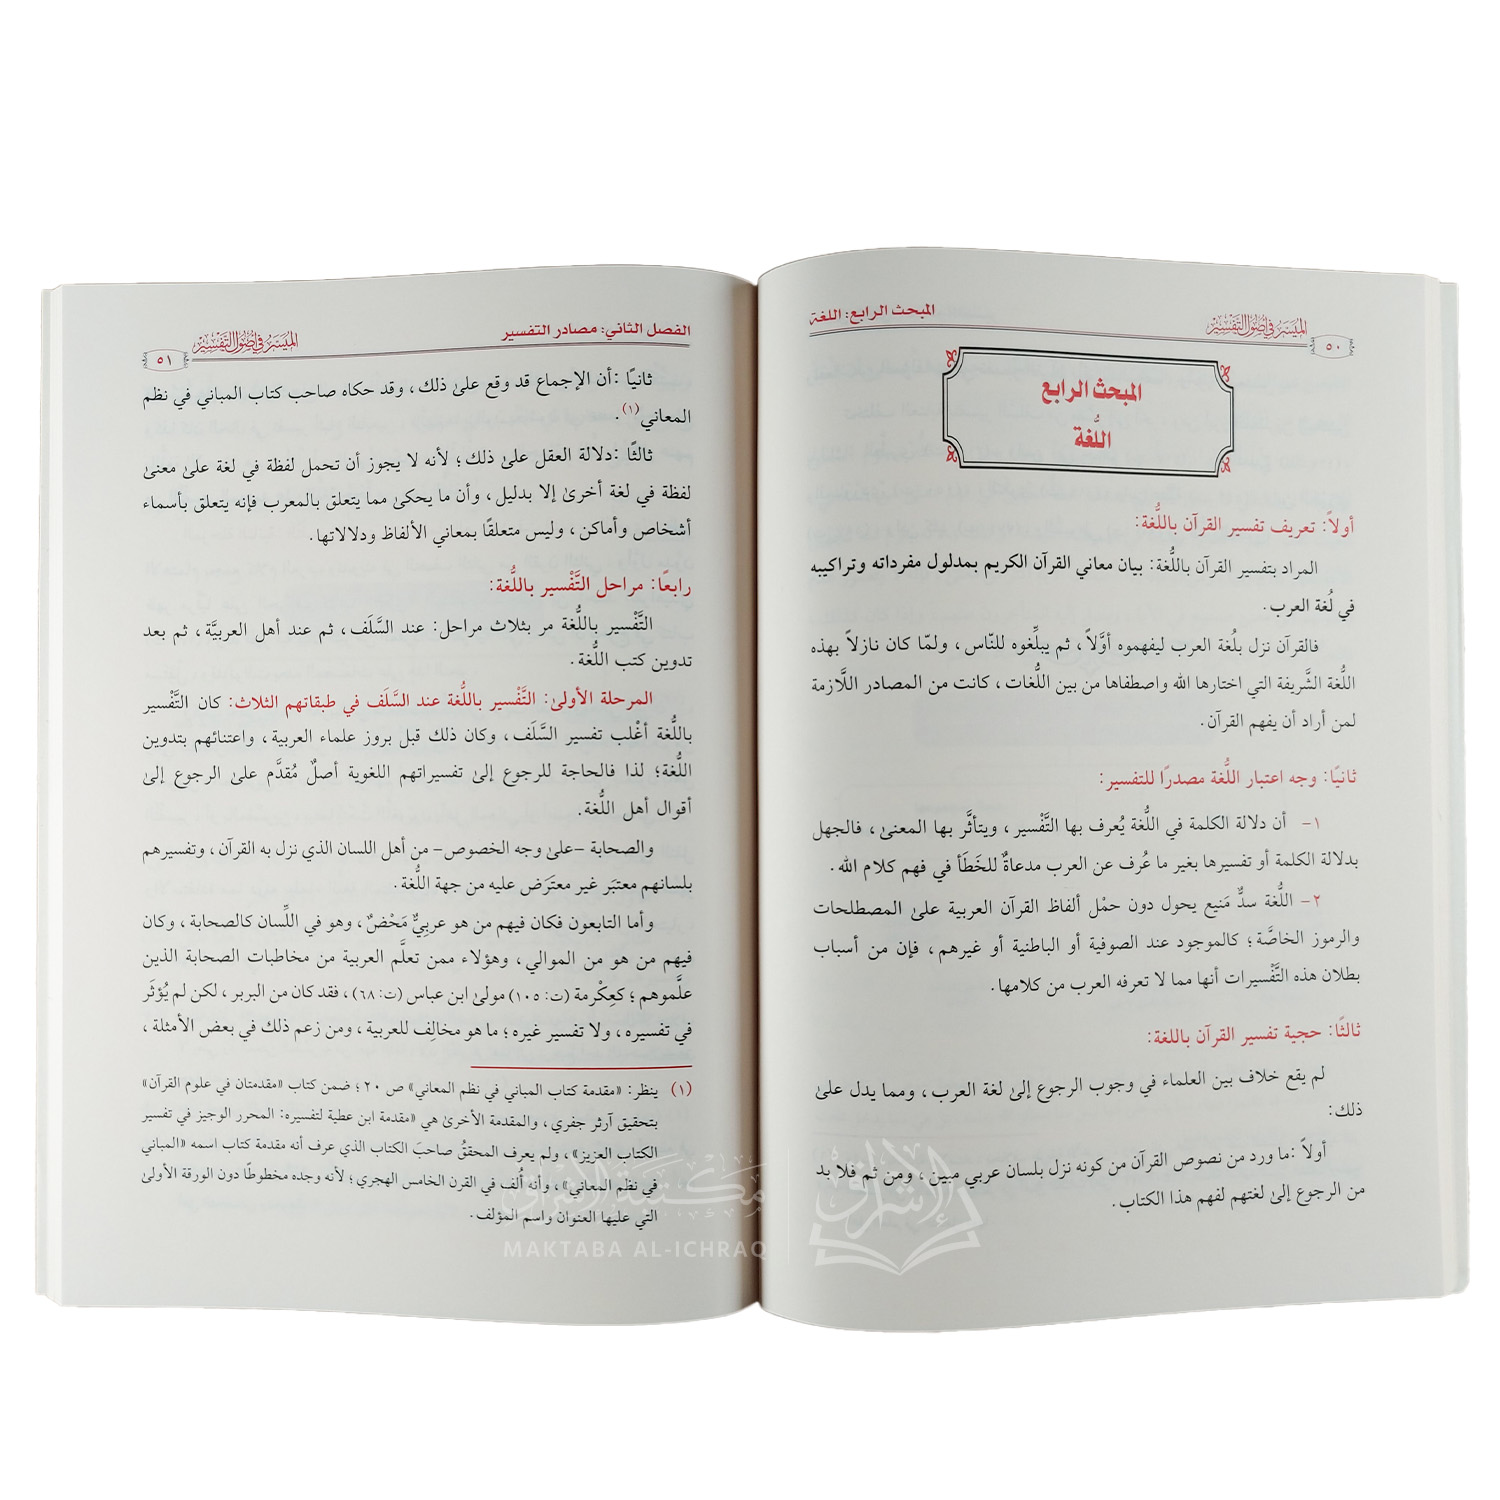 الميسر في أصول التفسير
٥٠
المبحث الرابع: اللغة
المبحث الرابع
اللُّغة
أولاً: تعريف تفسير القرآن باللُّغة:
المراد بتفسير القرآن باللُّغة: بيان معاني القرآن الكريم بمدلول مفرداته وتراكيبه
في لُغة العرب.
فالقرآن نزل بلُغة العرب ليفهموه أوَّلاً، ثم يبلِّغوه للنّاس، ولمّا كان نازلاً بهذه
اللُّغة الشَّريفة التي اختارها الله واصطفاها من بين اللُّغات، كانت من المصادر اللَّازمة
لمن أراد أن يفهم القرآن.
ثانيًا: وجه اعتبار اللُّغة مصدرًا للتفسير:
١- أن دلالة الكلمة في اللُّغة يُعرف بها التَّفْسير، ويتأثَّر بها المعنىٰ، فالجهل
بدلالة الكلمة أو تفسيرها بغير ما عُرف عن العرب مدعاةٌ للخَطَأ في فهم كلام الله.
٢- اللُّغة سدٌّ مَنيع يحول دون حمْل ألفاظ القرآن العربية علىٰ المصطلحات
والرموز الخاصَّة؛ كالموجود عند الصوفية أو الباطنية أو غيرهم، فإن من أسباب
بطلان هذه التَّفْسيرات أنها مما لا تعرفه العرب من كلامها.
ثالثًا: حجية تفسير القرآن باللغة:
لم يقع خلاف بين العلماء في وجوب الرجوع إلىٰ لغة العرب، ومما يدل علىٰ
ذلك:
أولاً: ما ورد من نصوص القرآن من كونه نزل بلسان عربي مبين، ومن ثم فلا بد
من الرجوع إلىٰ لغتهم لفهم هذا الكتاب.
الفصل الثاني: مصادر التفسير
الميسر في أصول التفسير
٥١
ثانيًا: أن الإجماع قد وقع علىٰ ذلك، وقد حكاه صاحب كتاب المباني في نظم
المعاني(١).
ثالثًا: دلالة العقل علىٰ ذلك؛ لأنه لا يجوز أن تحمل لفظة في لغة علىٰ معنىٰ
لفظة في لغة أخرىٰ إلا بدليل، وأن ما يحكىٰ مما يتعلق بالمعرب فإنه يتعلق بأسماء
أشخاص وأماكن، وليس متعلقًا بمعاني الألفاظ ودلالاتها.
رابعًا: مراحل التَّفْسير باللُّغة:
التَّفْسير باللُّغة مر بثلاث مراحل: عند السَّلَف، ثم عند أهل العربيَّة، ثم بعد
تدوين كتب اللُّغة.
المرحلة الأولىٰ: التَّفْسير باللُّغة عند السَّلَف في طبقاتهم الثلاث: كان التَّفْسير
باللُّغة أغْلب تفسير السَّلَف، وكان ذلك قبل بروز علماء العربية، واعتنائهم بتدوين
اللُّغة؛ لذا فالحاجة للرجوع إلىٰ تفسيراتهم اللغوية أصلٌ مُقدَّم علىٰ الرجوع إلىٰ
أقوال أهل اللُّغة.
والصحابة -علىٰ وجه الخصوص- من أهل اللسان الذي نزل به القرآن، وتفسيرهم
بلسانهم معتبَر غير معترَض عليه من جهة اللُّغة.
وأما التابعون فكان فيهم من هو عربيٌّ مَحْضٌ، وهو في اللِّسان كالصحابة، وكان
فيهم من هو من الموالي، وهؤلاء ممن تعلَّم العربية من مخاطبات الصحابة الذين
علَّموهم؛ كعِكْرمة (ت: ١٠٥) مولىٰ ابن عباس (ت: ٦٨)، فقد كان من البربر، لكن لم يُؤثَر
في تفسيره، ولا تفسير غيره؛ ما هو مخالِف للعربية، ومن زعم ذلك في بعض الأمثلة،
(١) ينظر: «مقدمة كتاب المباني في نظم المعاني» ص ٢٠؛ ضمن كتاب «مقدمتان في علوم القرآن»
بتحقيق آرثر جفري، والمقدمة الأخرىٰ هي «مقدمة ابن عطية لتفسيره: المحرر الوجيز في تفسير
الكتاب العزيز»، ولم يعرف المحققُ صاحبَ الكتاب الذي عرف أنه مقدمة كتاب اسمه «المباني
في نظم المعاني»، وأنه أُلف في القرن الخامس الهجري؛ لأنه وجده مخطوطًا دون الورقة الأولىٰ
التي عليها العنوان واسم المؤلف.
مكتبة الإشراق
MAKTABA AL-ICHRAQ
الإشراق